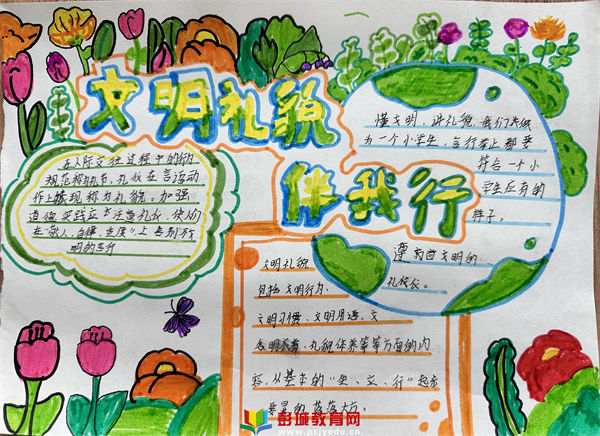 文明礼貌
伴我行
在人际交往过程中的行为
规范称为礼节,礼仪在言语动
作上的表现称为礼貌。加强
道德实践应当注意礼仪,使人们
在"敬人、自律、适度"上
明的言行
懂文明、讲礼貌,我们要做
为一个小学生,言行举上都要
符合一个小
学生应有的
样子。
遵守
文明的
礼仪仪。
文明礼貌
包括文明行为、
文明习惯、文明用语、文
礼貌修养等等方面的内
容,从基本的"坐、立、行"起
的落落大方。
彭城教育网
www.pcjyedu.cn